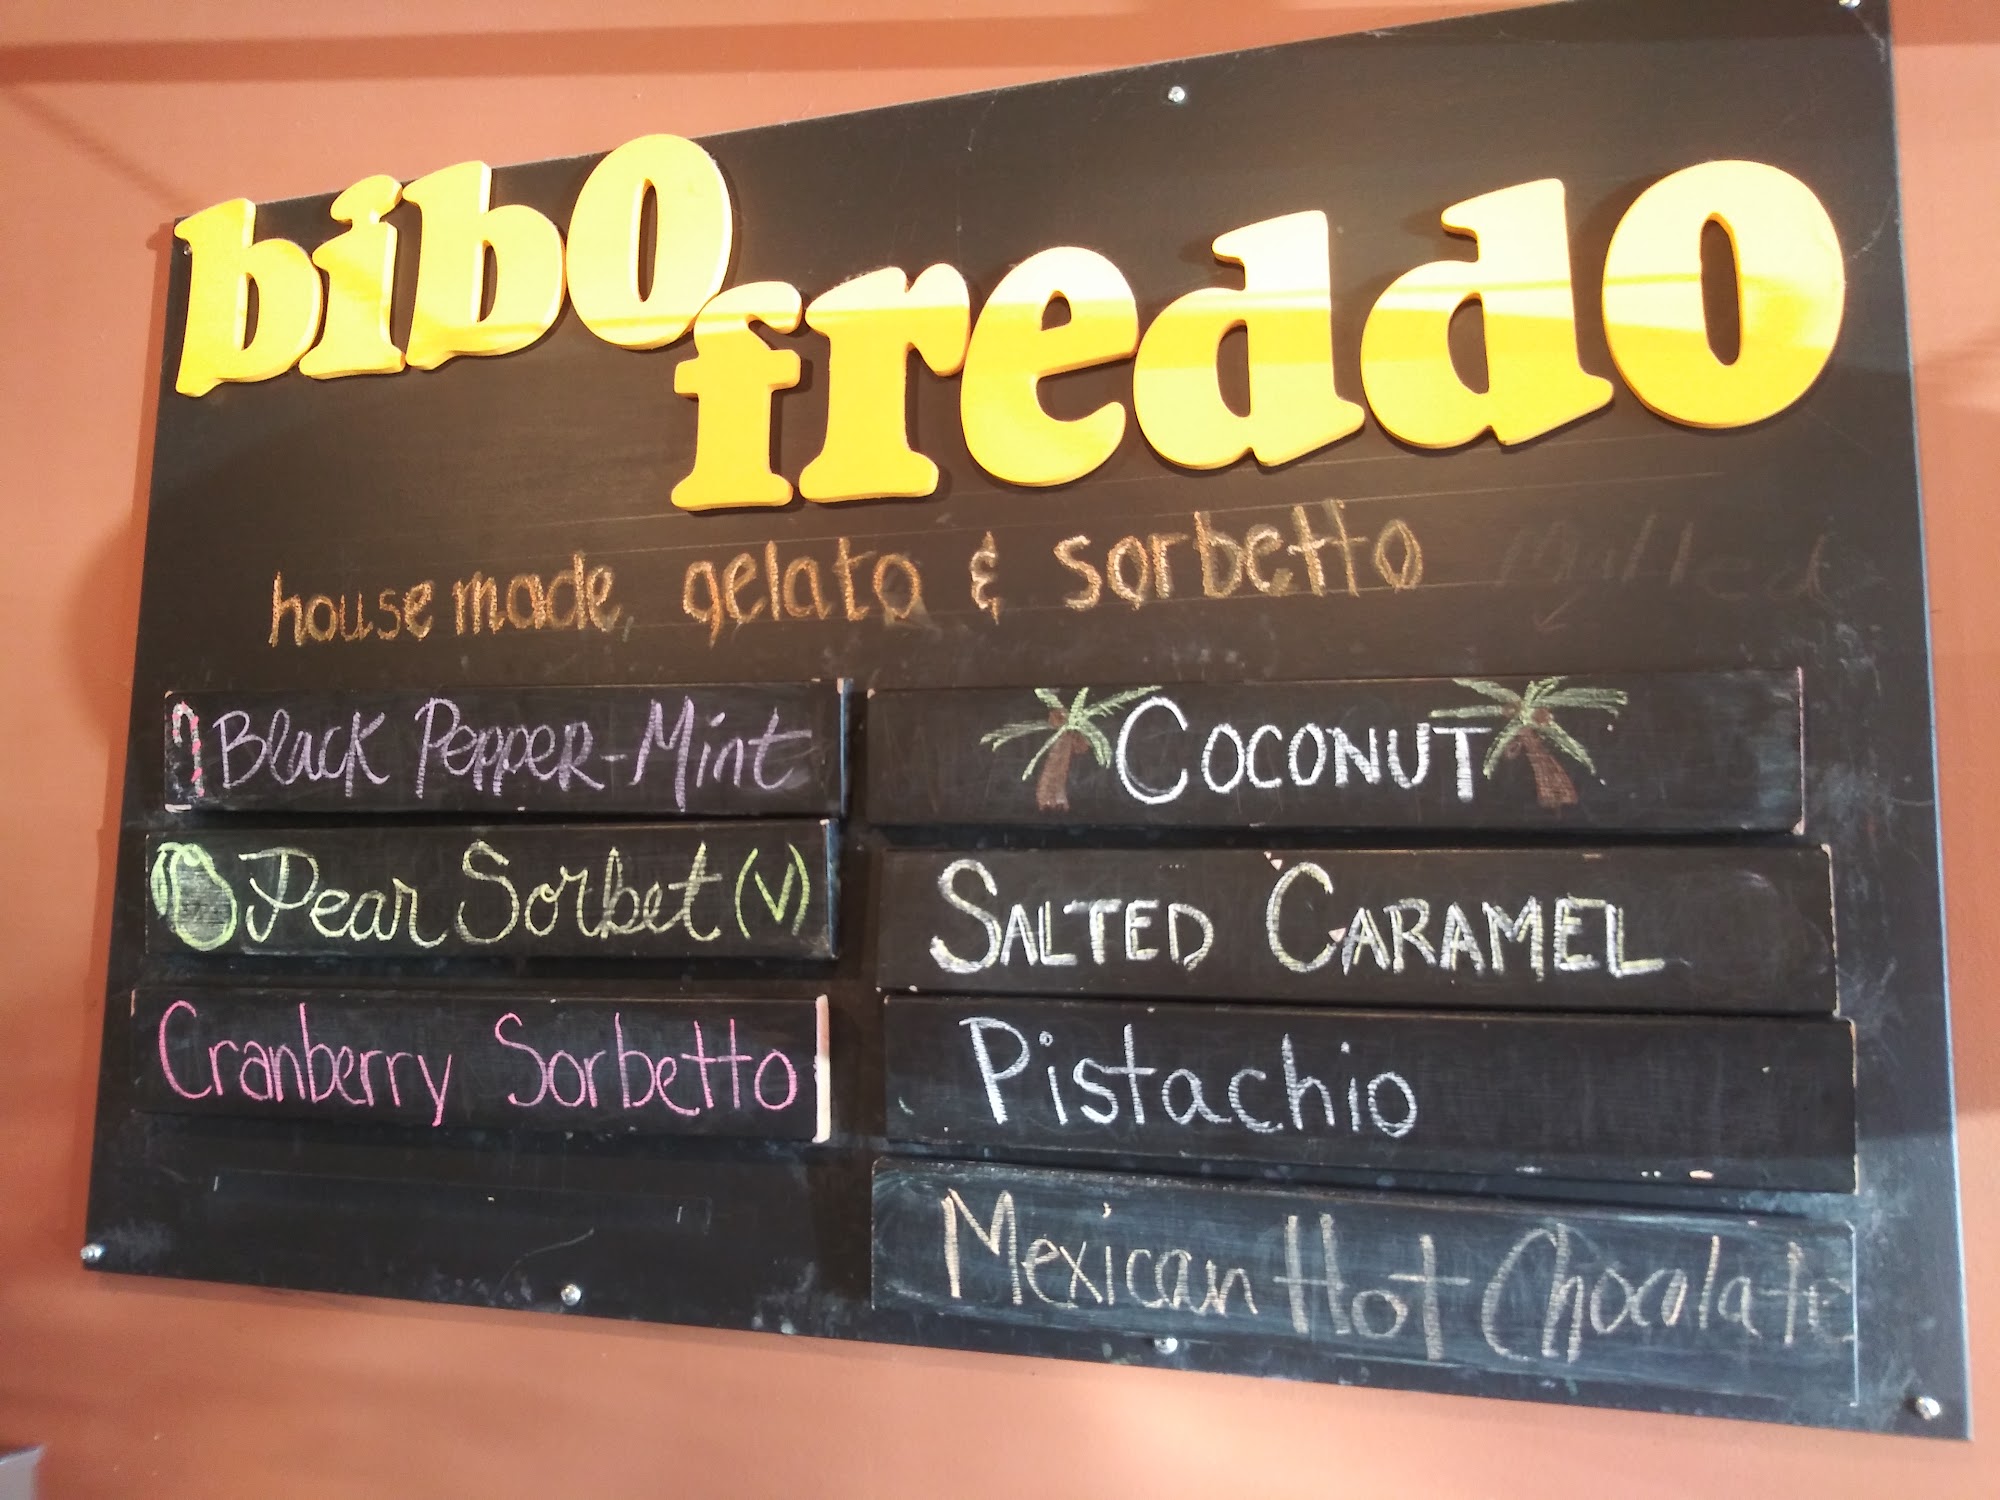 bibo
freddo
housemade gelato & sorbetto
Black Pepper-Mint
Pear Sorbet (V)
Cranberry Sorbetto
COCONUT
SALTED CARAMEL
Pistachio
Mexican Hot Chocolate